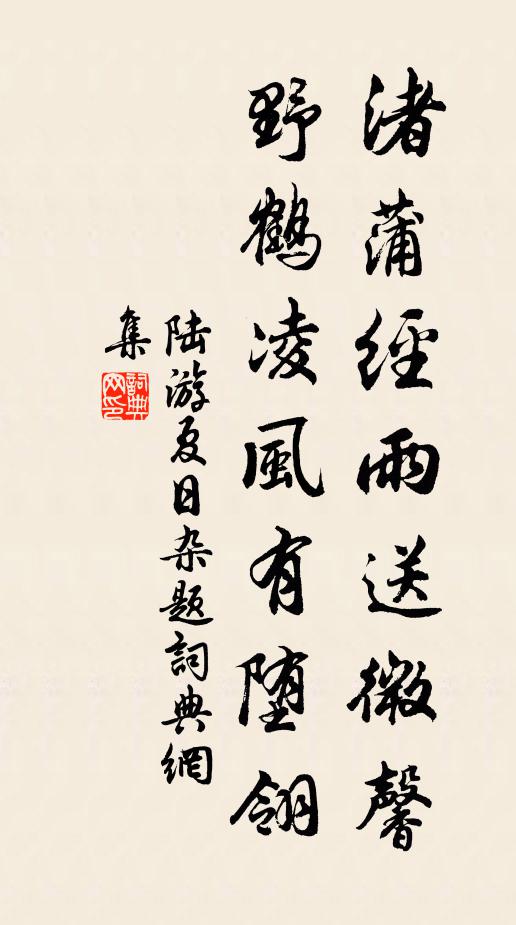 渚蒲經雨送微馨
野鶴凌風有堕翎
陆游夏日杂题詞典網
集
詞典
网印